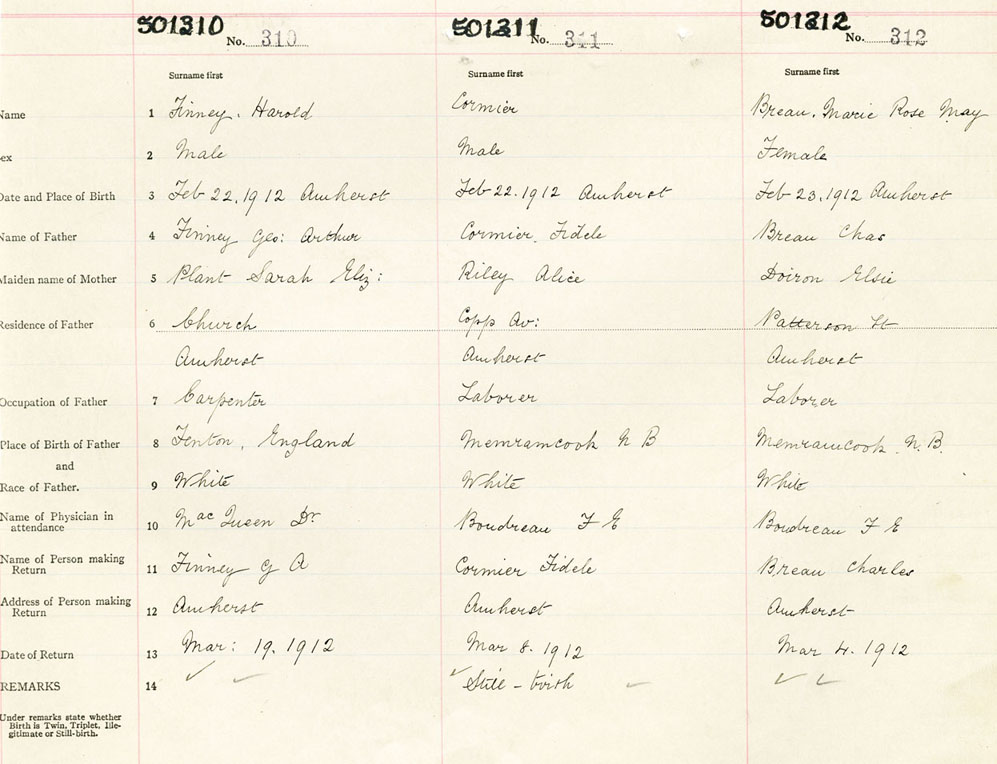 501310 501311 501312
No. 310 No. 311 No. 312
Surname first Surname first Surname first
Name 1 Finney, Harold Cormier Breau, Marie Rose May
ex 2 Male Male Female
Date and Place of Birth 3 Feb 22, 1912 Amherst Feb 22. 1912 Amherst Feb 23, 1912 Amherst
Name of Father 4 Finney Geo: Arthur Cormier, Fidele Breau Chas
Maiden name of Mother 5 Plant Sarah Eliz: Riley Alice Doiron Elsie
Residence of Father 6 Church Copp Av: Patterson St
Amherst Amherst Amherst
Occupation of Father 7 Carpenter Laborer Laborer
Place of Birth of Father 8 Fenton, England Memramcook N B Memramcook. N. B.
and
Race of Father. 9 White White White
Name of Physician in
attendance 10 MacQueen Dr Boudreau F E Boudreau F E
Name of Person making
Return 11 Finney G A Cormier Fidele Breau Charles
Address of Person making
Return 12 Amherst Amherst Amherst
Date of Return 13 Mar: 19. 1912 Mar 8. 1912 Mar 4. 1912
REMARKS 14 Still - birth
Under remarks state whether
Birth is Twin, Triplet, Ille-
gitimate or Still-birth.